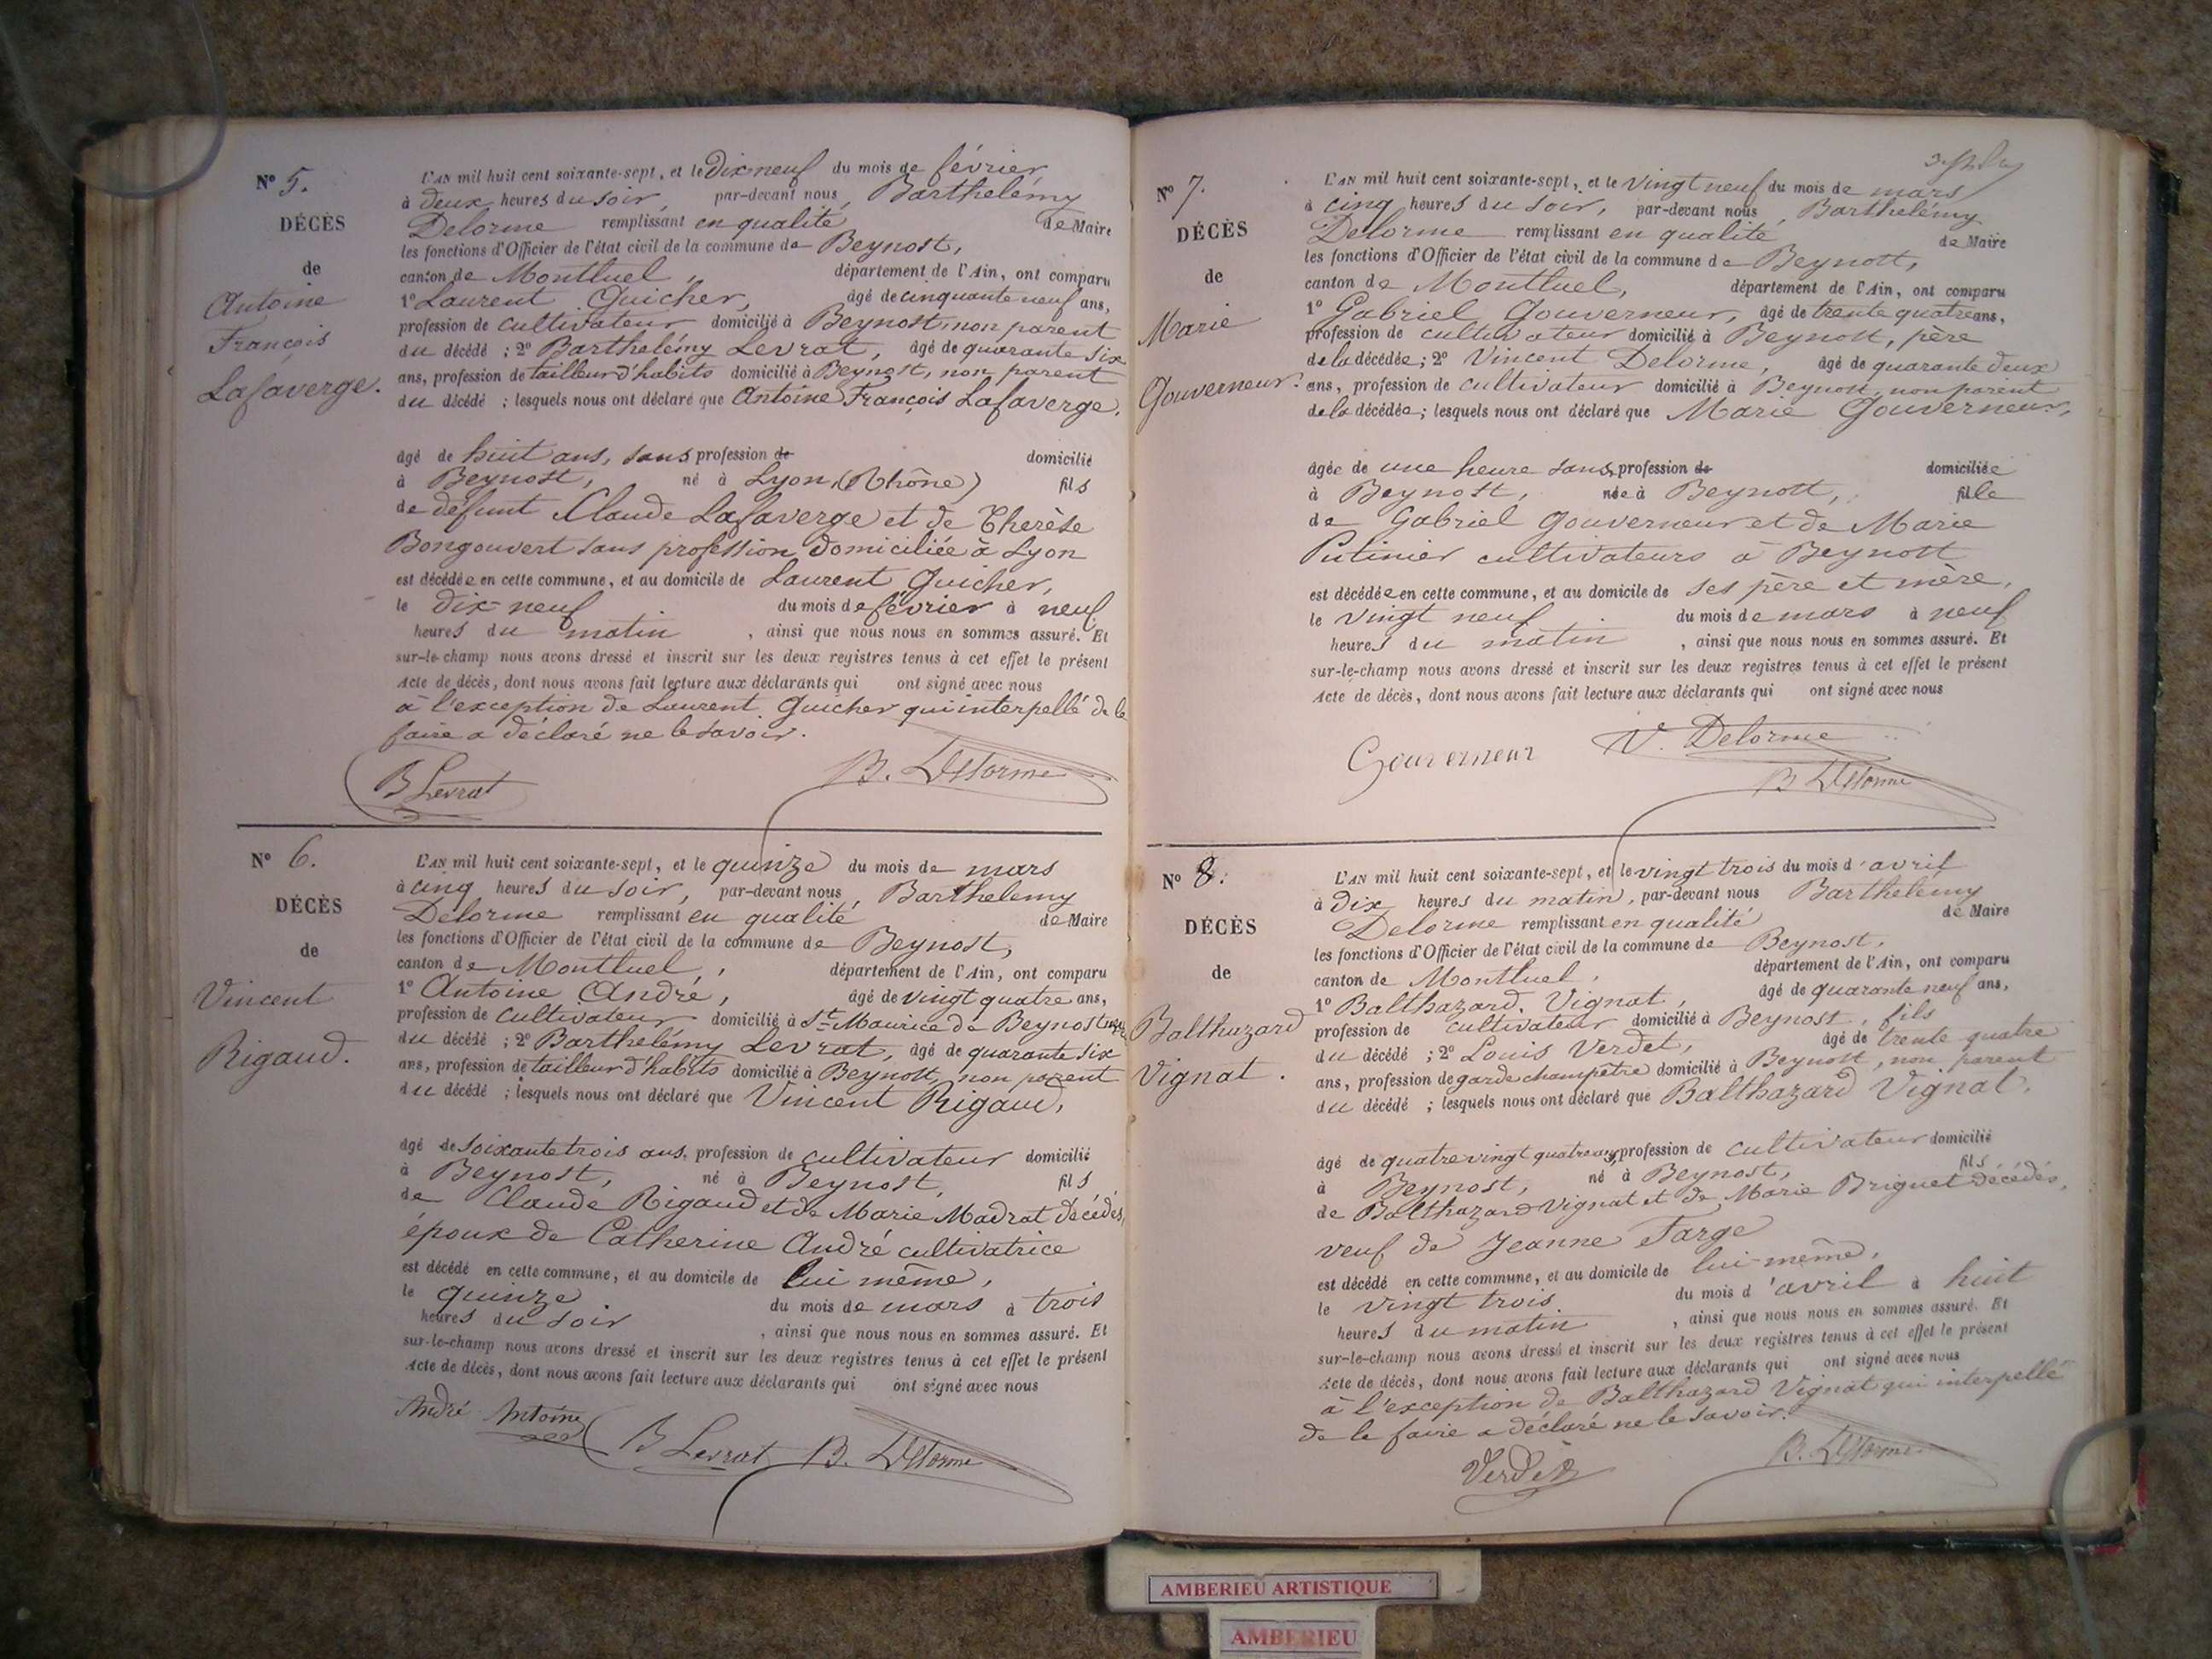 N° 5.
DÉCÈS
de
Antoine
François
Lafaverge.
L'AN mil huit cent soixante-sept, et le Dix neuf du mois de février
à deux heures du soir, par-devant nous, Barthelémy
Delorme remplissant en qualité de Maire
les fonctions d'Officier de l'état civil de la commune de Beynost,
canton de Montluel, département de l'Ain, ont comparu
1° Laurent Guicher, âgé de cinquante neuf ans,
profession de cultivateur domicilié à Beynost, non parent
du décédé ; 2° Barthelémy Levrat, âgé de quarante six
ans, profession de tailleur d'habits domicilié à Beynost, non parent
du décédé ; lesquels nous ont déclaré que Antoine François Lafaverge,
âgé de huit ans, sans profession de domicilié
à Beynost, né à Lyon, (Rhône) fils
de défunt Claude Lafaverge et de Therèse
Bongouvert sans profession domiciliée à Lyon
est décédée en cette commune, et au domicile de Laurent Guicher,
le dix-neuf du mois de février à neuf
heures du matin, ainsi que nous nous en sommes assuré. Et
sur-le-champ nous avons dressé et inscrit sur les deux registres tenus à cet effet le présent
Acte de décès, dont nous avons fait lecture aux déclarants qui ont signé avec nous
à l'exception de Laurent Guicher qui interpellé de le
faire a déclaré ne le savoir.
B Levrat B. Delorme
N° 6.
DÉCÈS
de
Vincent
Rigaud.
L'AN mil huit cent soixante-sept, et le quinze du mois de mars
à cinq heures du soir, par-devant nous, Barthelemy
Delorme remplissant en qualité de Maire
les fonctions d'Officier de l'état civil de la commune de Beynost,
canton de Montluel, département de l'Ain, ont comparu
1° Antoine André, âgé de vingt quatre ans,
profession de cultivateur domicilié à St Maurice de Beynost
du décédé ; 2° Barthelémy Levrat, âgé de quarante six
ans, profession de tailleur d'habits domicilié à Beynost, non parent
du décédé ; lesquels nous ont déclaré que Vincent Rigaud,
âgé de soixante trois ans, profession de cultivateur domicilié
à Beynost, né à Beynost, fils
de Claude Rigaud et de Marie Madrat décédés,
époux de Catherine André cultivatrice
est décédé en cette commune, et au domicile de lui même,
le quinze du mois de mars à trois
heures du soir, ainsi que nous nous en sommes assuré. Et
sur-le-champ nous avons dressé et inscrit sur les deux registres tenus à cet effet le présent
Acte de décès, dont nous avons fait lecture aux déclarants qui ont signé avec nous
André Antoine B Levrat B. Delorme
N° 7.
DÉCÈS
de
Marie
Gouverneur.
L'AN mil huit cent soixante-sept, et le vingt neuf du mois de mars
à cinq heures du soir, par-devant nous, Barthelémy
Delorme remplissant en qualité de Maire
les fonctions d'Officier de l'état civil de la commune de Beynost,
canton de Montluel, département de l'Ain, ont comparu
1° Gabriel Gouverneur, âgé de trente quatre ans,
profession de cultivateur domicilié à Beynost, père
de la décédée ; 2° Vincent Delorme, âgé de quarante deux
ans, profession de cultivateur domicilié à Beynost, non parent
de la décédée ; lesquels nous ont déclaré que Marie Gouverneur,
âgée de une heure sans profession de domiciliée
à Beynost, née à Beynost, fille
de Gabriel Gouverneur et de Marie
Putinier cultivateurs à Beynost
est décédée en cette commune, et au domicile de ses père et mère,
le vingt neuf du mois de mars à neuf
heures du matin, ainsi que nous nous en sommes assuré. Et
sur-le-champ nous avons dressé et inscrit sur les deux registres tenus à cet effet le présent
Acte de décès, dont nous avons fait lecture aux déclarants qui ont signé avec nous
Gouverneur V. Delorme
B Delorme
N° 8.
DÉCÈS
de
Balthazard
Vignat.
L'AN mil huit cent soixante-sept, et le vingt trois du mois d'avril
à dix heures du matin, par-devant nous Barthelémy
Delorme remplissant en qualité de Maire
les fonctions d'Officier de l'état civil de la commune de Beynost,
canton de Montluel, département de l'Ain, ont comparu
1° Balthazard Vignat, âgé de quarante neuf ans,
profession de cultivateur domicilié à Beynost, fils
du décédé ; 2° Louis Verdet, âgé de trente quatre
ans, profession de garde champêtre domicilié à Beynost, non parent
du décédé ; lesquels nous ont déclaré que Balthazard Vignat,
âgé de quatre vingt quatre ans, profession de cultivateur domicilié
à Beynost, né à Beynost, fils
de Balthazard Vignat et de Marie Briguet décédés,
veuf de Jeanne Farge
est décédé en cette commune, et au domicile de lui même,
le vingt trois du mois d'avril à huit
heures du matin, ainsi que nous nous en sommes assuré. Et
sur-le-champ nous avons dressé et inscrit sur les deux registres tenus à cet effet le présent
Acte de décès, dont nous avons fait lecture aux déclarants qui ont signé avec nous
à l'exception de Balthazard Vignat qui interpellé
de le faire a déclaré ne le savoir.
Verdet B. Delorme
AMBERIEU ARTISTIQUE
AMBERIEU